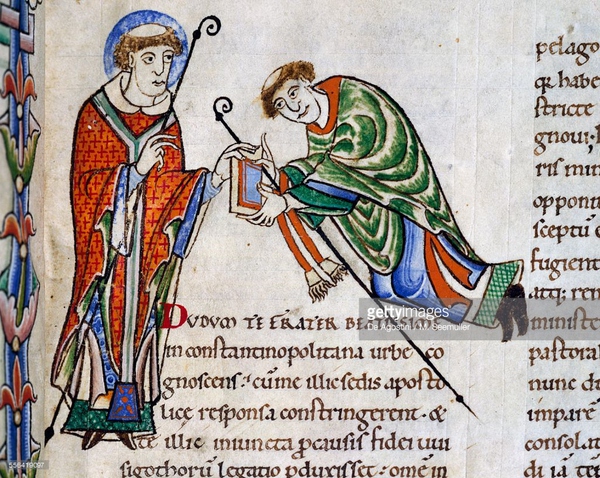 DUDUM TE FRATER BE
in constantinopolitana urbe co
gnoscens; cum me illic sedis aposto
lice responsa constringerent. &
te illic iniuncta pro causis fidei uui
sigothorū legatio pduxisset. omē in
pelago
qr habe
stricte
gnoui;
ris min
opponi
sceptū e
fugient
atq; ren
ministe
pastoral
nunc di
impare
consolat
di ia
gettyimages
De Agostini / M. Seemuller
556419097